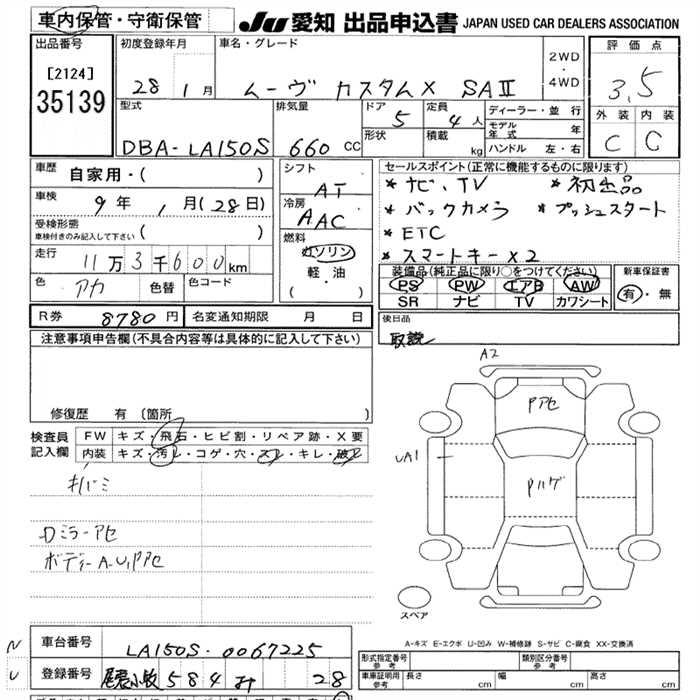 車内保管・守衛保管
JU 愛知 出品申込書 JAPAN USED CAR DEALERS ASSOCIATION
出品番号
[2124]
35139
初度登録年月
28 1月
車名・グレード
ムーヴ カスタムX SAⅡ
2WD
4WD
評価点
3.5
外装 内装
C C
型式
DBA-LA150S
排気量
660 CC
ドア
5
形状
定員
4人
積載
kg
ディーラー・並行
モデル年式 年
ハンドル 左・右
車歴 自家用・( )
車検 9年 1月(28日)
受検形態
車検付きのみ記入して下さい ( )
走行 11万3千600km
色 アカ 色替 色コード
シフト
AT
冷房
AAC
燃料
ガソリン
軽・油
( ・ )
セールスポイント(正常に機能するものに限ります)
* ナビ、TV * 初出品
* バックカメラ * プッシュスタート
* ETC
* スマートキー×2
装備品(純正品に限り○をつけてください)
PS PW エアB AW
SR ナビ TV カワシート
新車保証書
有・無
R券 8780円 名変通知期限 月 日
後日品
取説
注意事項申告欄(不具合内容等は具体的に記入して下さい)
修復歴 有(箇所 )
検査員記入欄
FW キズ・飛石・ヒビ割・リペア跡・X要
内装 キズ・汚レ・コゲ・穴・スレ・キレ・破レ
キバミ
Dミラーアセ
ボディーA-U,Pアセ
A2
Pアセ
UA1
Pハゲ
スペア
A-キズ E-エクボ U-凹み W-補修跡 S-サビ C-腐食 XX-交換済
車台番号 LA150S-0067225
登録番号 尾張小牧 584 28
形式指定番号
参考
類別区分番号
参考
車車証明用
参考
長さ cm 幅 cm 高さ cm